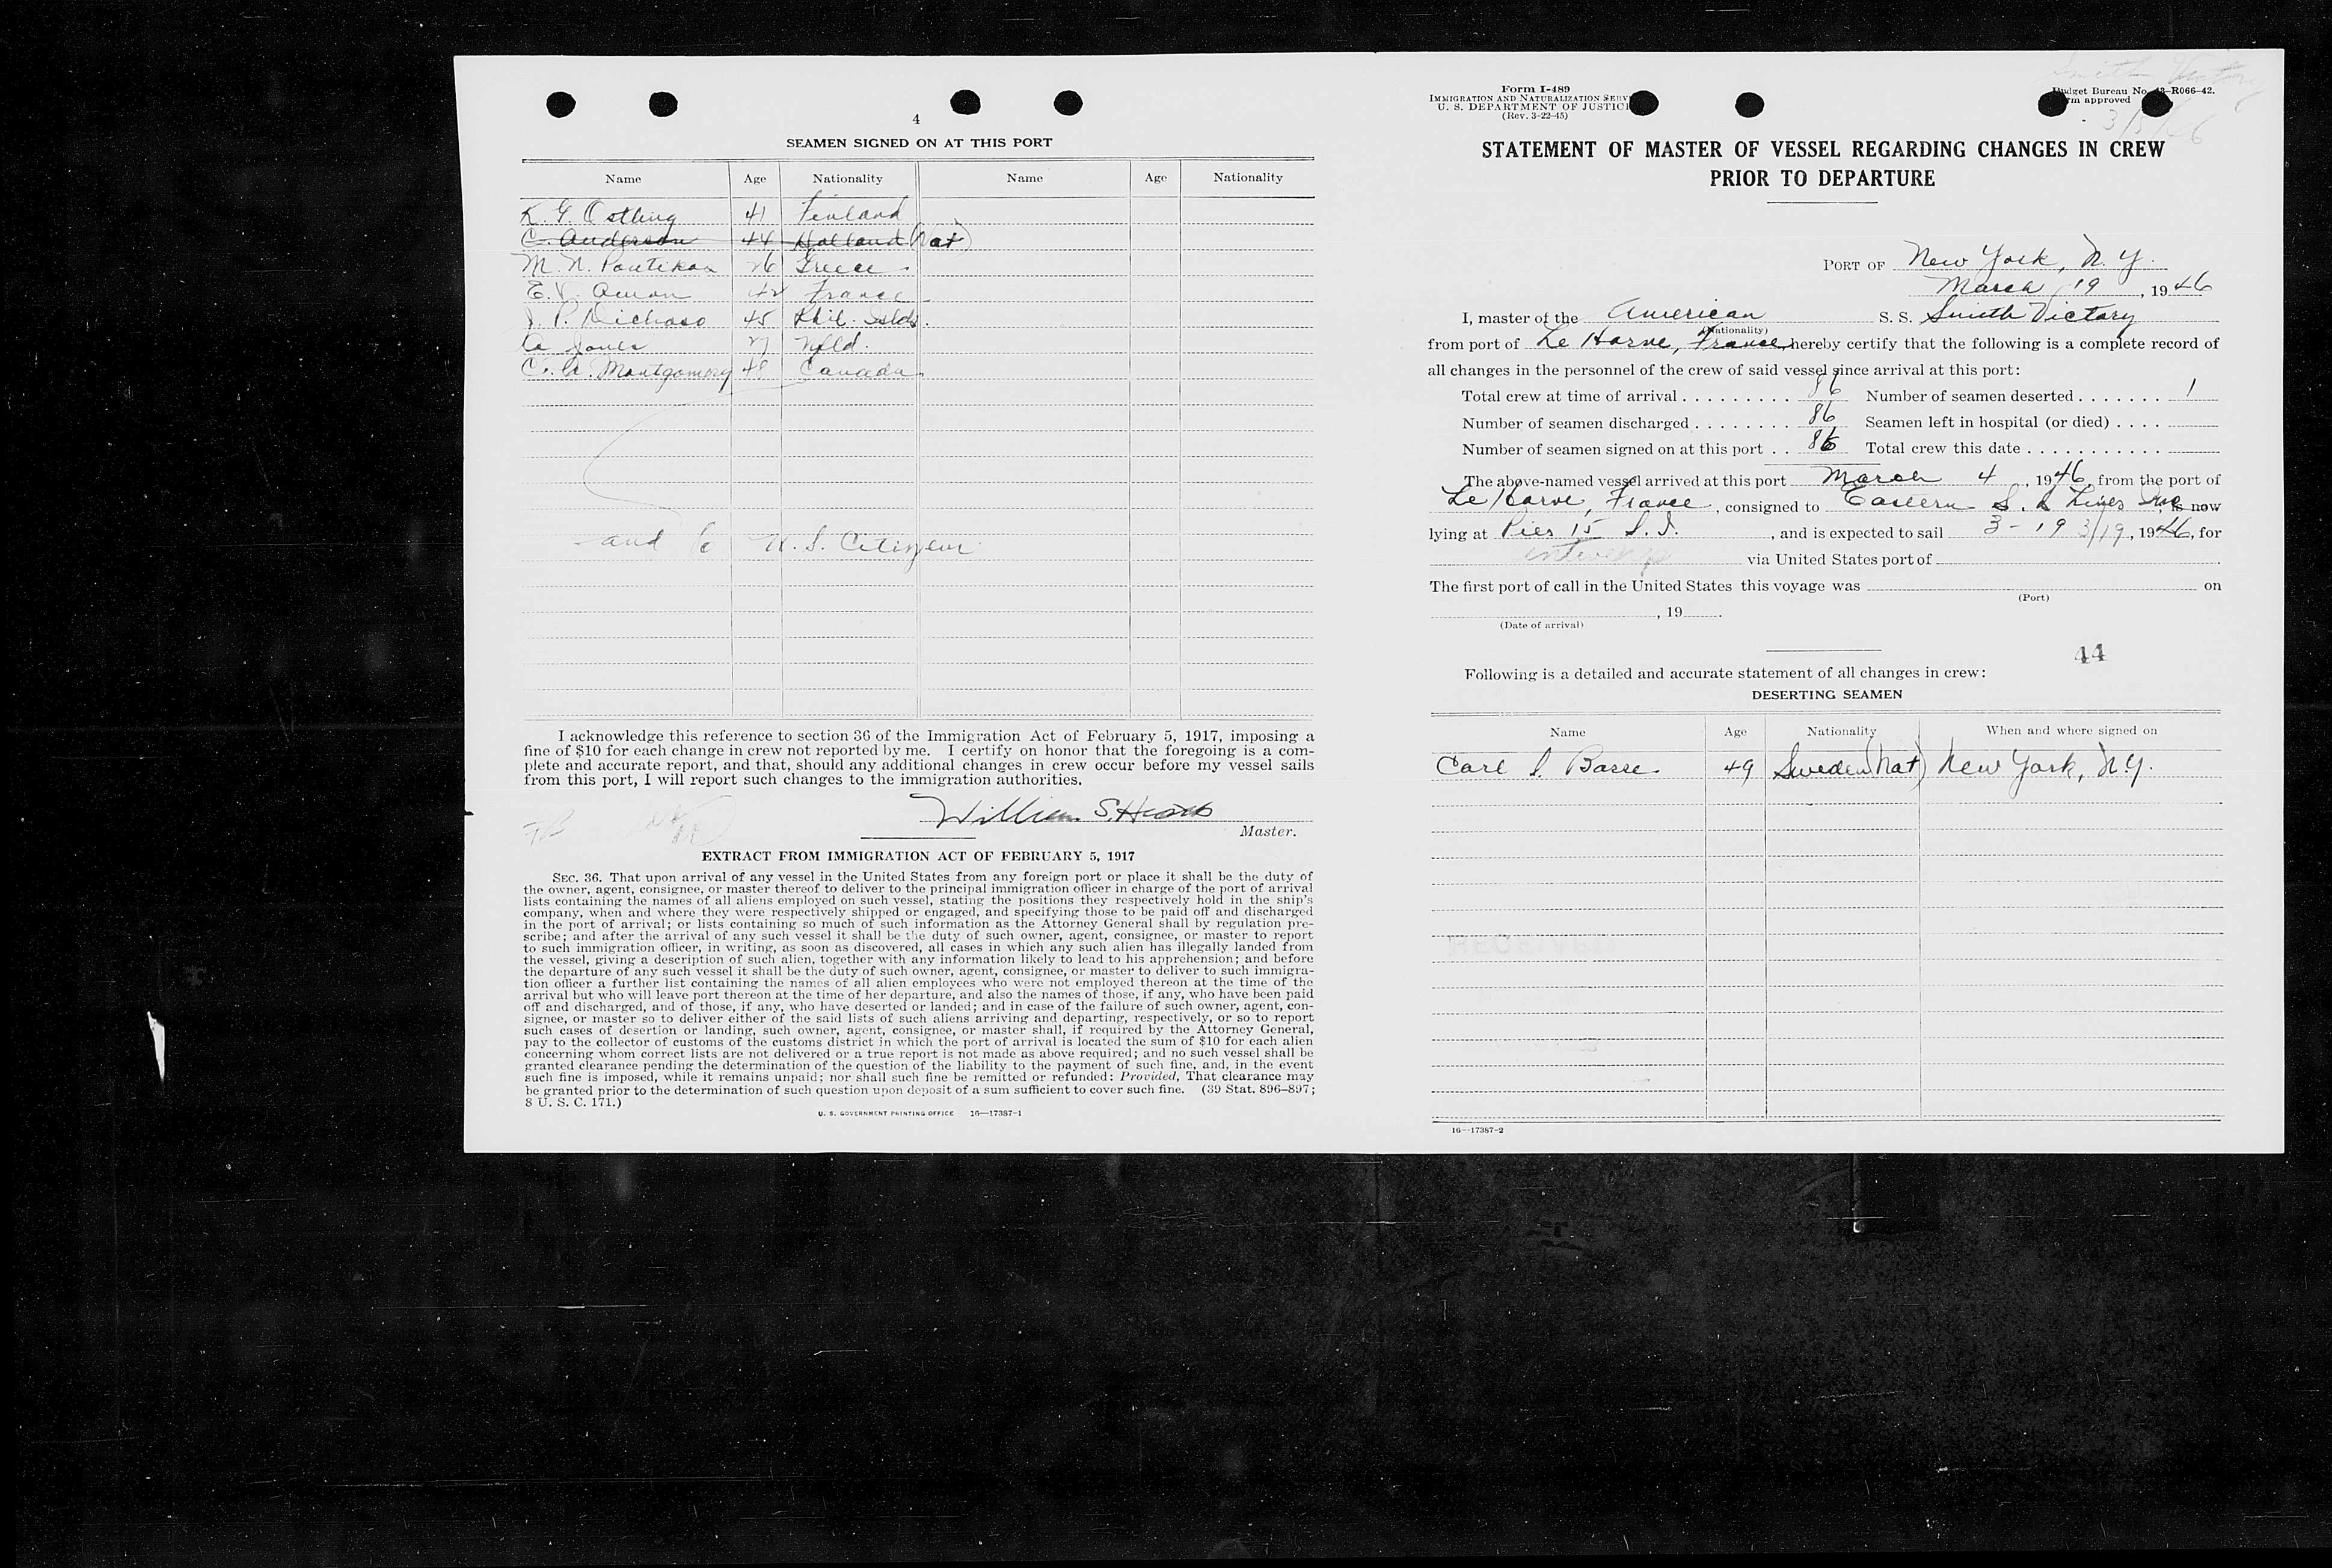 4
SEAMEN SIGNED ON AT THIS PORT
Name Age Nationality Name Age Nationality
K. G. Ostling 41 Finland
C. Anderson 44 Holland (Nat)
M. N. 26 Greece
E. V. 42 France
J. P. Dichoso 45 Phil. Islds.
Jones 27 Nfld.
C. W. Montgomery 48 Canada
and U. S. Citizens
I acknowledge this reference to section 36 of the Immigration Act of February 5, 1917, imposing a
fine of $10 for each change in crew not reported by me. I certify on honor that the foregoing is a com-
plete and accurate report, and that, should any additional changes in crew occur before my vessel sails
from this port, I will report such changes to the immigration authorities.
William S.
Master.
EXTRACT FROM IMMIGRATION ACT OF FEBRUARY 5, 1917
SEC. 36. That upon arrival of any vessel in the United States from any foreign port or place it shall be the duty of
the owner, agent, consignee, or master thereof to deliver to the principal immigration officer in charge of the port of arrival
lists containing the names of all aliens employed on such vessel, stating the positions they respectively hold in the ship's
company, when and where they were respectively shipped or engaged, and specifying those to be paid off and discharged
in the port of arrival; or lists containing so much of such information as the Attorney General shall by regulation pre-
scribe; and after the arrival of any such vessel it shall be the duty of such owner, agent, consignee, or master to report
to such immigration officer, in writing, as soon as discovered, all cases in which any such alien has illegally landed from
the vessel, giving a description of such alien, together with any information likely to lead to his apprehension; and before
the departure of any such vessel it shall be the duty of such owner, agent, consignee, or master to deliver to such immigra-
tion officer a further list containing the names of all alien employees who were not employed thereon at the time of the
arrival but who will leave port thereon at the time of her departure, and also the names of those, if any, who have been paid
off and discharged, and of those, if any, who have deserted or landed; and in case of the failure of such owner, agent, con-
signee, or master so to deliver either of the said lists of such aliens arriving and departing, respectively, or so to report
such cases of desertion or landing, such owner, agent, consignee, or master shall, if required by the Attorney General,
pay to the collector of customs of the customs district in which the port of arrival is located the sum of $10 for each alien
concerning whom correct lists are not delivered or a true report is not made as above required; and no such vessel shall be
granted clearance pending the determination of the question of the liability to the payment of such fine, and, in the event
such fine is imposed, while it remains unpaid; nor shall such fine be remitted or refunded: Provided, That clearance may
be granted prior to the determination of such question upon deposit of a sum sufficient to cover such fine. (39 Stat. 896–897;
8 U. S. C. 171.)
U. S. GOVERNMENT PRINTING OFFICE 16—17387-1
Smith Victory
Form I-489
IMMIGRATION AND NATURALIZATION SERV
U. S. DEPARTMENT OF JUSTICE
(Rev. 3-22-45)
Budget Bureau No. 43-R066-42.
Form approved
STATEMENT OF MASTER OF VESSEL REGARDING CHANGES IN CREW
PRIOR TO DEPARTURE
PORT OF New York, N. Y.
March 19, 1946
I, master of the American S. S. Smith Victory
(Nationality)
from port of Le Harve, France, hereby certify that the following is a complete record of
all changes in the personnel of the crew of said vessel since arrival at this port:
Total crew at time of arrival 86 Number of seamen deserted 1
Number of seamen discharged 86 Seamen left in hospital (or died)
Number of seamen signed on at this port 86 Total crew this date
The above-named vessel arrived at this port March 4, 1946, from the port of
Le Harve, France, consigned to Eastern S. S. Lines Inc is now
lying at Pier 15 S. I., and is expected to sail 3-19 3/19, 1946, for
via United States port of
The first port of call in the United States this voyage was on
(Port)
, 19
(Date of arrival)
44
Following is a detailed and accurate statement of all changes in crew:
DESERTING SEAMEN
Name Age Nationality When and where signed on
Carl S. Basse 49 Sweden (Nat) New York, N.Y.
RECEIVED
16—17387-2